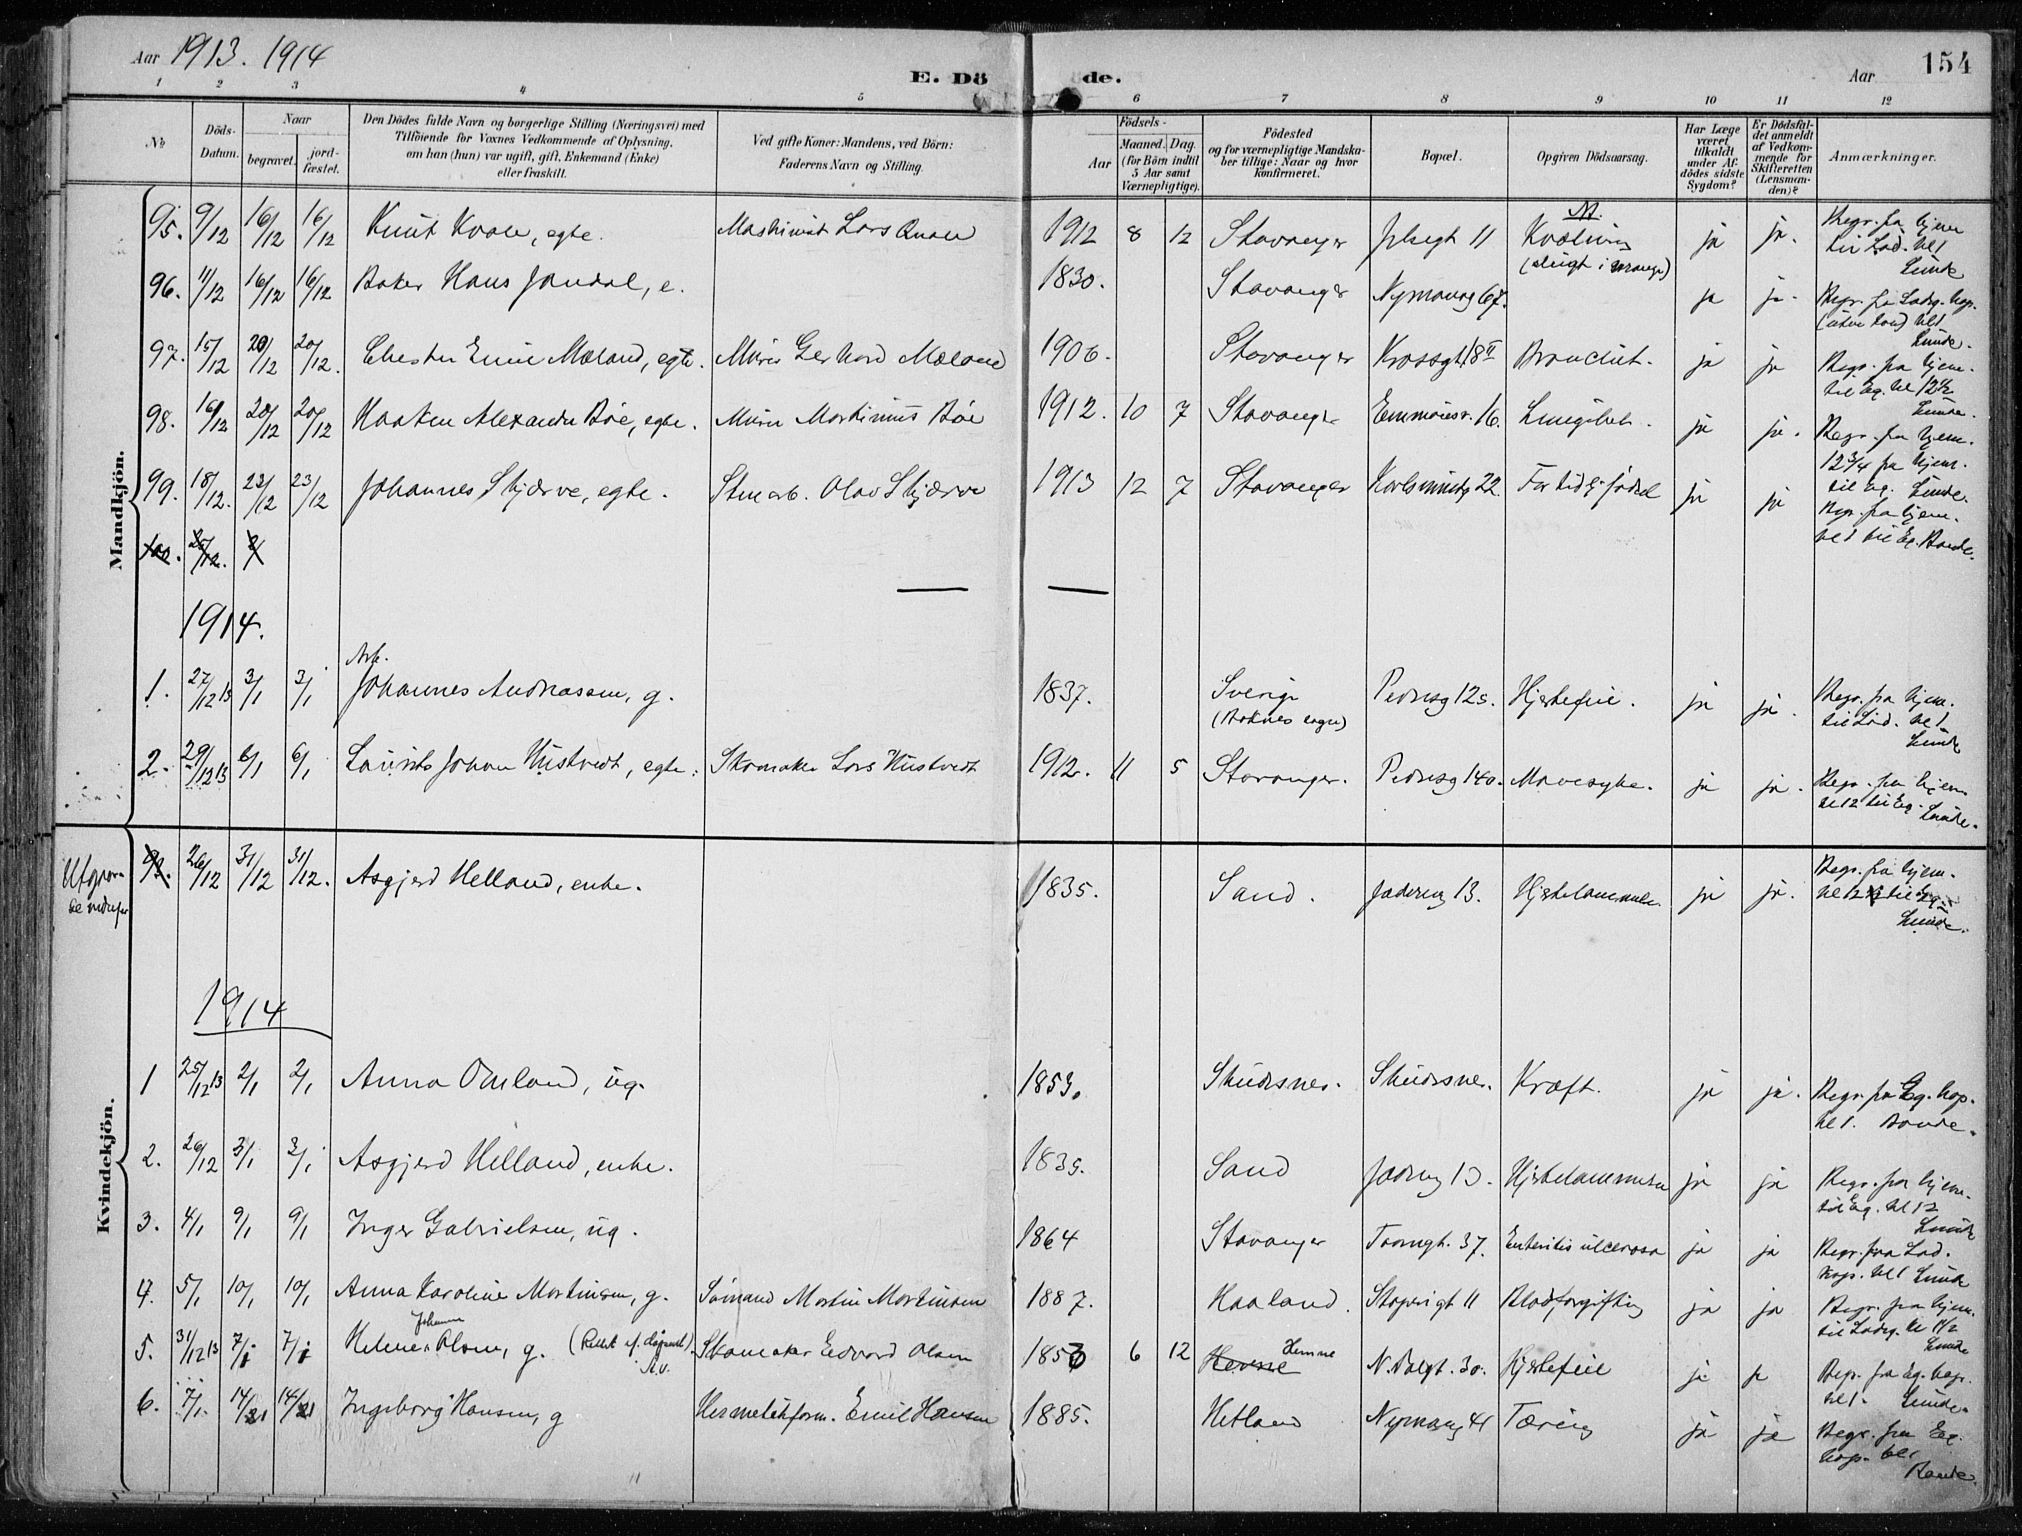 Aar 1913. 1914
E. Dö de.
Aar
154
1 2 3 4 5 6 7 8 9 10 11 12
No
Döds-Datum.
Naar
begravet.
jord-fæstet.
Den Dödes fulde Navn og borgerlige Stilling (Næringsvei) med
Tilföiende for Voxnes Vedkommende af Oplysning,
om han (hun) var ugift, gift, Enkemand (Enke)
eller fraskilt.
Ved gifte Koner: Mandens, ved Börn:
Faderens Navn og Stilling.
Födsels-
Aar
Maaned. Dag.
(for Börn indtil
5 Aar samt
Værnepligtige).
Födested
og for værnepligtige Mandska-
ber tillige: Naar og hvor
konfirmeret.
Bopæl.
Opgiven Dödsaarsag.
Har Læge
været
tilkaldt
under Af-
dödes sidste
Sygdom?
Er Dödsfal-
det anmeldt
af Vedkom-
mende for
Skifteretten
(Lensman-
den)?
Anmærkninger.
Mandkjön.
95. 9/12 16/12 16/12 Knut Kvale, egte. Maskinist Lars Qvale 1912 8 12 Stavanger 11 Kvælning ja ja. Begr. fra hjem
til Lad. kl 1
Lunde
96. 11/12 16/12 16/12 Baker Hans Jondal, e. 1830. Stavanger 67. ja ja. Begr. fra Ladg. kap.
kl 1
Lunde.
97. 15/12 20/12 20/12. Chester Emil Mæland, egte. Murer Gerhard Mæland 1906. Stavanger Krossgt. 18 II Bronchit. ja ja Begr. fra hjem.
til Eg. kl 12 1/2
Lunde.
98. 16/12 20/12 20/12 Haaken Alexander Bøe, egte. Murer Martinius Bøe 1912. 10 7 Stavanger Emmausv. 16. ja ja. Begr. fra hjem.
12 3/4 fra hjem.
til Eg. Lunde.
99. 18/12. 23/12 23/12 Johannes Skjærve, egte. Olav Skjærve 1913 12 7 Stavanger 22. For tidlig födsel ja ja Begr. fra hjem.
kl 1 til Eg. Bande.
100. 25/12.
1914.
Arb.
1. 27/12 13 3/1 3/1 Johannes Andreassen, g. 1837. Sverige Pedersg 125. Hjertefeil. ja ja. Begr. fra hjem.
til Lad. kl 1
Lunde
2. 29/12 13 6/1 6/1 Laurits Johan Hustvedt, egte. Skomaker Lars Hustvedt 1912. 11 5 Stavanger. Pedersg 140. Mavesyke. ja ja. Begr. fra hjem
kl 12 til Eg. Lunde.
93. 26/12 31/12 31/12. Asgjerd Helland, enke. 1835. Sand. Jaderveg 13. Hjertelammelse. ja ja. Begr. fra hjem.
kl 12 til Eg.
Lunde.
1914
Kvindekjön.
1 25/12 13 2/1 2/1 Anna Omland, ug. 1853. Skudesnes. Skudesnes. Kræft. ja ja. Begr. fra Eg. kap.
kl 1. Bande.
2. 26/12 3/1 3/1 Asgjerd Helland, enke. 1835. Sand Jaderveg 13. Hjertelammelse ja ja Begr. fra hjem.
til Eg. kl 12
Lunde
3. 4/1 9/1 9/1 Inger Gabrielsen, ug. 1864 Stavanger 37. Enteritis ulcerosa ja ja Begr. fra Lad.
kap. kl 1 Lunde
4. 5/1 10/1 10/1 Anna Karoline Martinsen, g. Sömand Martin Martinsen 1887. Haaland. 11 Blodforgiftning ja ja Begr. fra hjem.
til Ladg. kl 1 1/2
Lunde
5. 31/12 13 7/1 7/1 Helene Johanne Olsen, g. Skomaker Edvard Olsen 1850 6 12 Hevne Hemne N. Dalgt. 30. Hjertefeil ja ja Begr. fra Eg. kap.
kl 1. Lunde.
6. 7/1. 14/1 14/1 Ingeborg Hansen, g Hermetikform. Emil Hansen 1885. Hetland 41 Tæring ja ja Begr. fra Eg.
kap. kl 1
Bande.